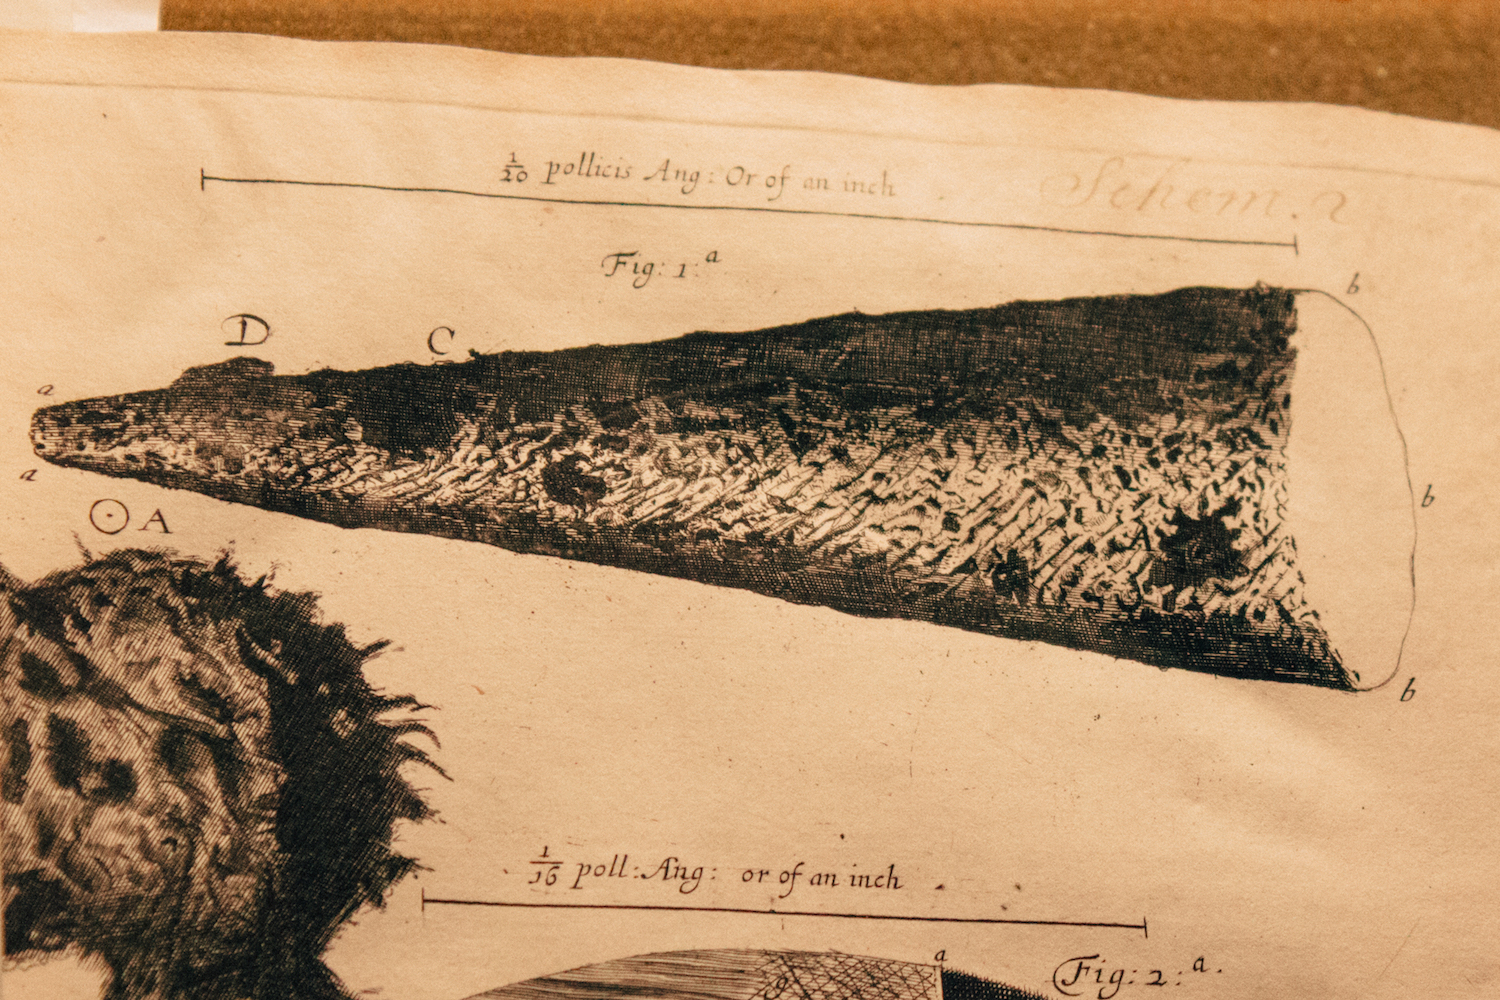 1/20 pollicis Ang: Or of an inch
Schem. 2
Fig: 1:a
b
D
C
a
a
b
A
A
b
1/16 poll: Ang: or of an inch
a
Fig: 2:a.
g